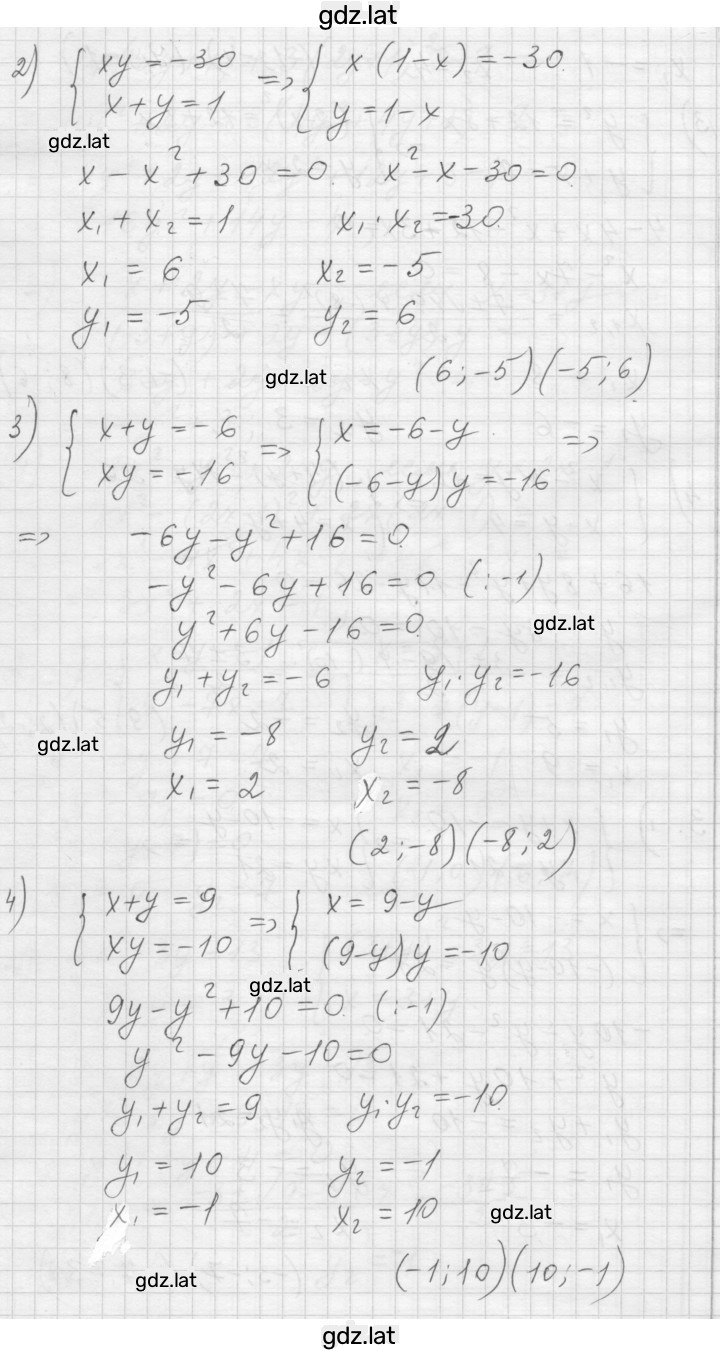 gdz.lat
2) { xy = -30 => { x(1-x) = -30
x+y = 1 y = 1-x
gdz.lat
x - x² + 30 = 0. x² - x - 30 = 0.
x₁ + x₂ = 1 x₁·x₂ = -30.
x₁ = 6 x₂ = -5
y₁ = -5 y₂ = 6
gdz.lat (6;-5)(-5;6)
3) { x+y = -6 => { x = -6-y =>
xy = -16 (-6-y)y = -16
=> -6y - y² + 16 = 0
-y² - 6y + 16 = 0 (:-1)
y² + 6y - 16 = 0 gdz.lat
y₁ + y₂ = -6 y₁·y₂ = -16
gdz.lat y₁ = -8 y₂ = 2
x₁ = 2 x₂ = -8
(2;-8)(-8;2)
4) { x+y = 9 => { x = 9-y
xy = -10 (9-y)y = -10
gdz.lat
9y - y² + 10 = 0. (:-1)
y² - 9y - 10 = 0
y₁ + y₂ = 9 y₁·y₂ = -10
y₁ = 10 y₂ = -1
x₁ = -1 x₂ = 10 gdz.lat
gdz.lat (-1;10)(10;-1)
gdz.lat